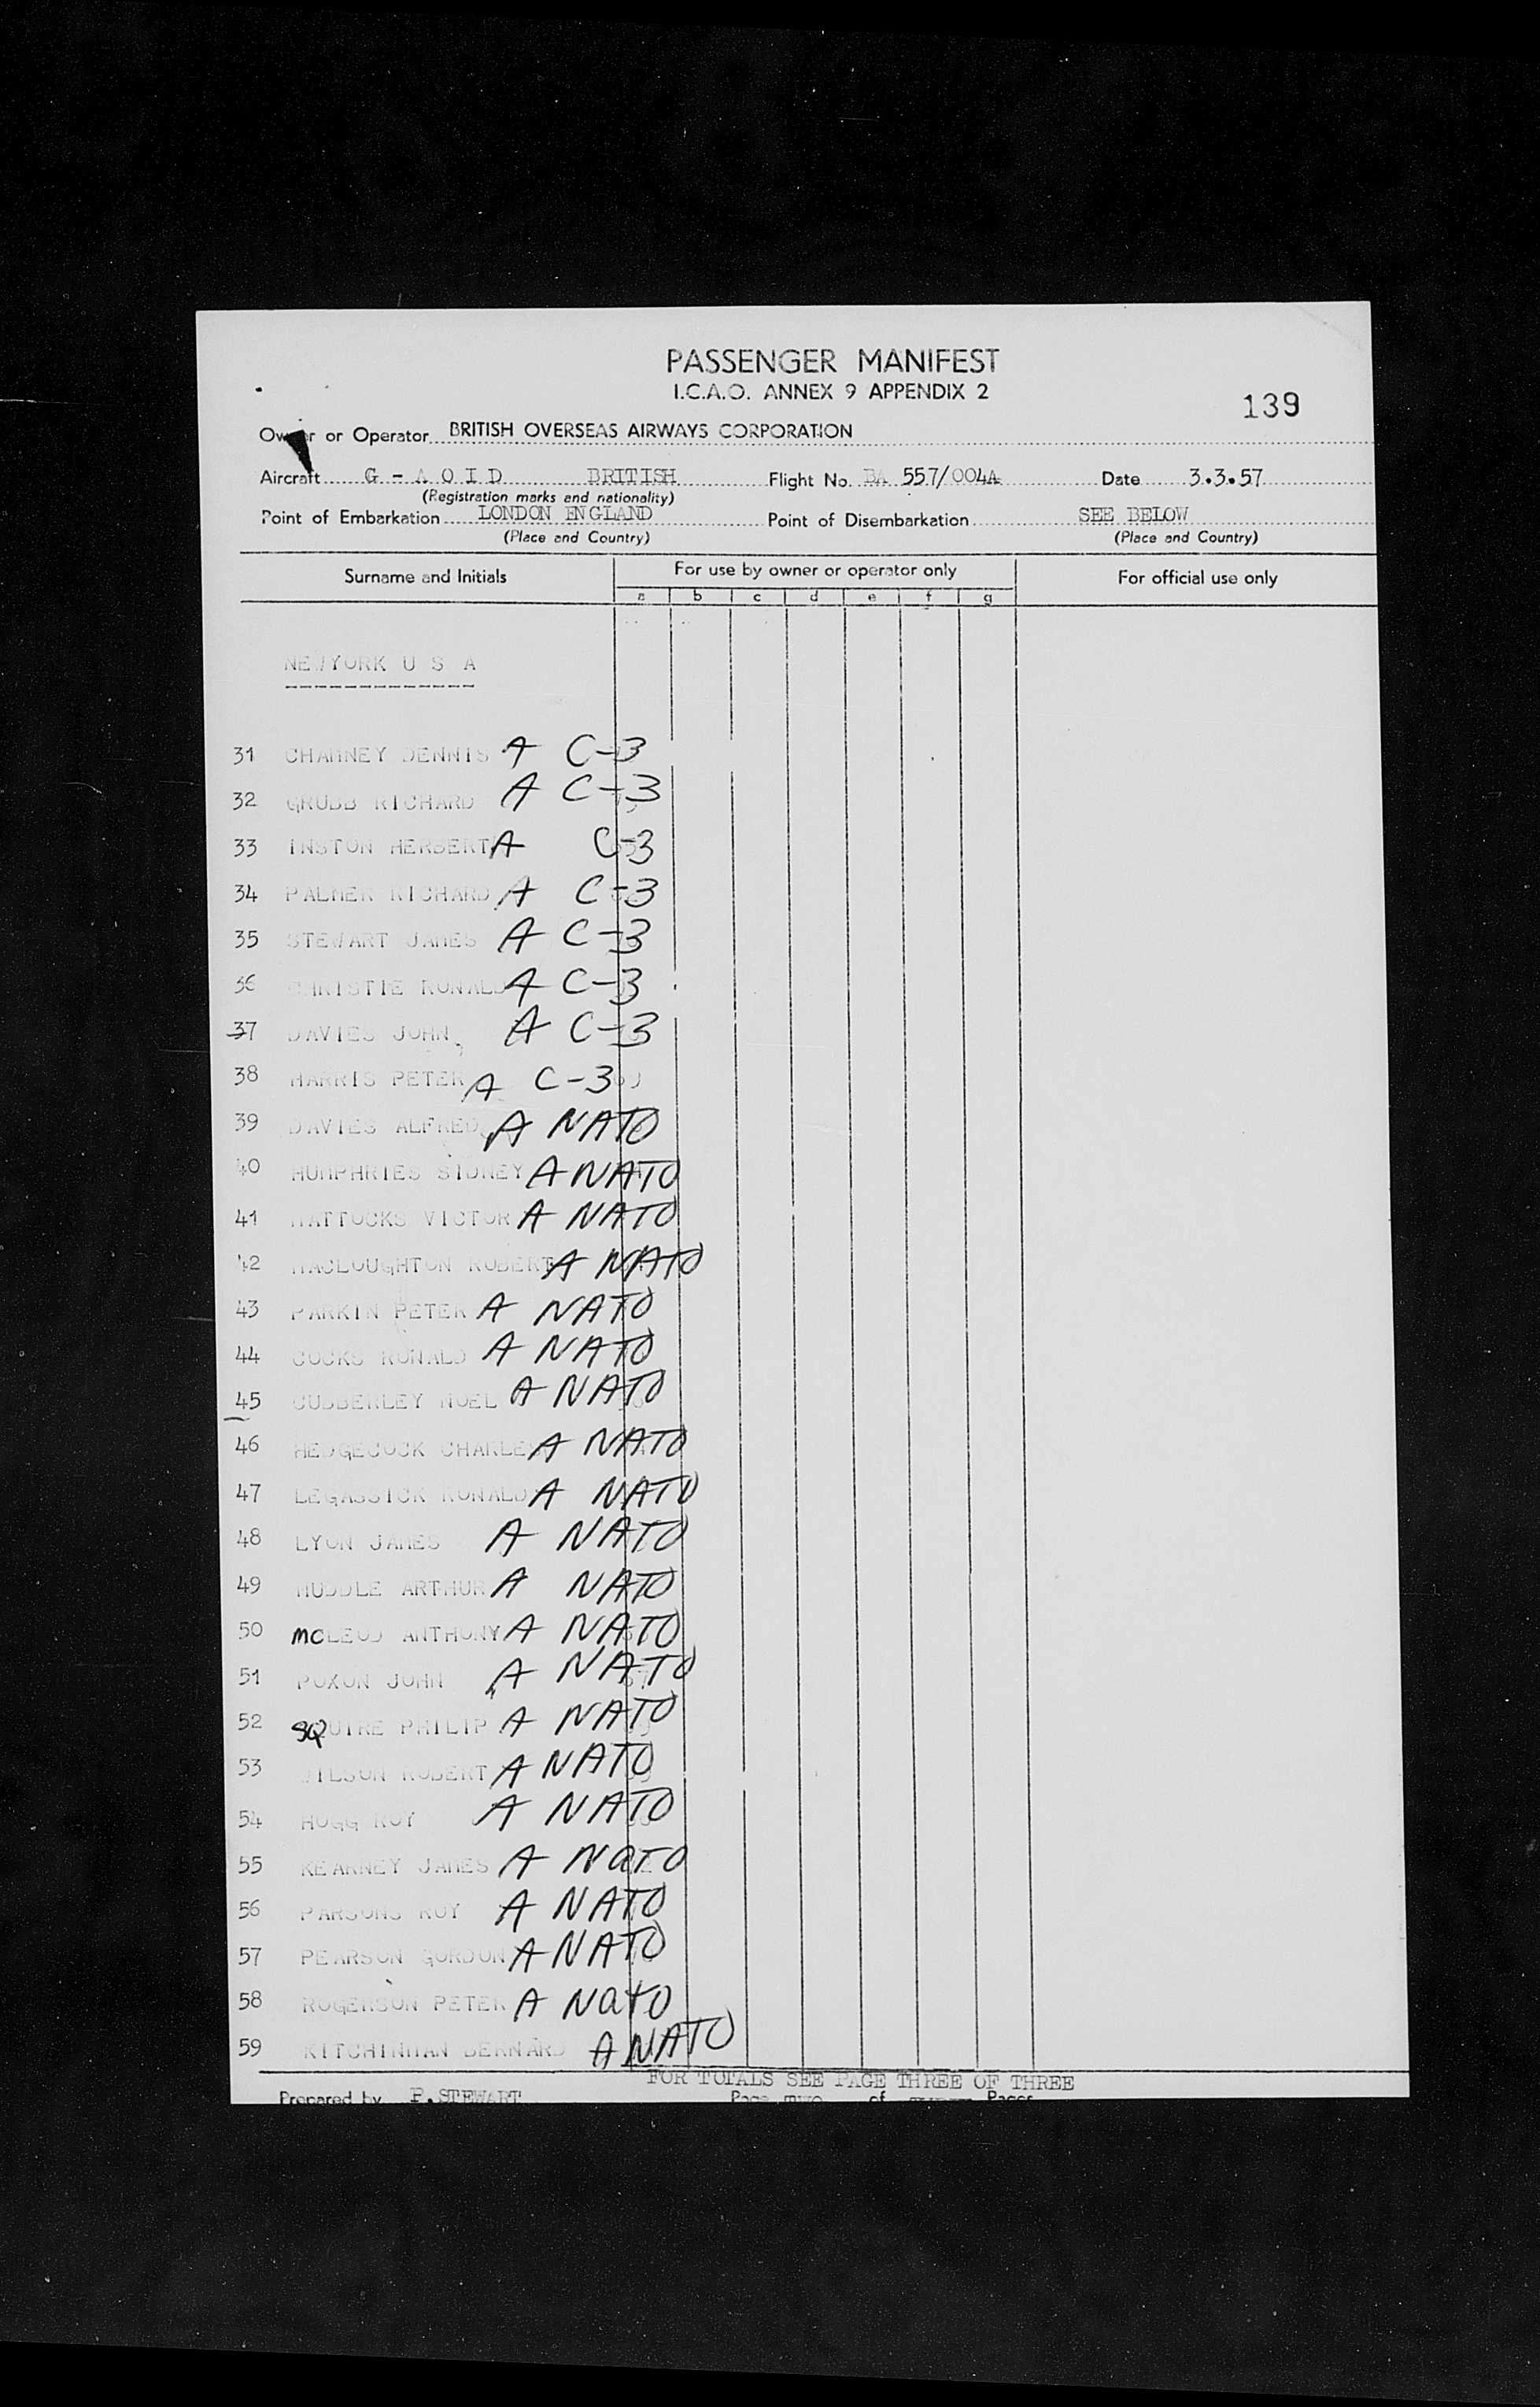 PASSENGER MANIFEST
I.C.A.O. ANNEX 9 APPENDIX 2
139
Owner or Operator BRITISH OVERSEAS AIRWAYS CORPORATION
Aircraft G - A O I D BRITISH Flight No. BA 557/004A Date 3.3.57
(Registration marks and nationality)
Point of Embarkation LONDON ENGLAND Point of Disembarkation SEE BELOW
(Place and Country) (Place and Country)
Surname and Initials For use by owner or operator only For official use only
a b c d e f g
NEWYORK U S A
31 CHARNEY DENNIS A C-3
32 GRUBB RICHARD A C-3
33 INSTON HERBERT A C-3
34 PALMER RICHARD A C-3
35 STEWART JAMES A C-3
36 CHRISTIE RONALD A C-3
37 DAVIES JOHN A C-3
38 HARRIS PETER A C-3
39 DAVIES ALFRED A NATO
40 HUMPHRIES SIDNEY A NATO
41 MATTOCKS VICTOR A NATO
42 MACLOUGHTON ROBERT A NATO
43 PARKIN PETER A NATO
44 COCKS RONALD A NATO
45 CUBBERLEY NOEL A NATO
46 HEDGECOCK CHARLES A NATO
47 LEGASSICK RONALD A NATO
48 LYON JAMES A NATO
49 MUDDLE ARTHUR A NATO
50 MCLEOD ANTHONY A NATO
51 POXON JOHN A NATO
52 SQUIRE PHILIP A NATO
53 WILSON ROBERT A NATO
54 HOGG ROY A NATO
55 KEARNEY JAMES A NATO
56 PARSONS ROY A NATO
57 PEARSON GORDON A NATO
58 ROGERSON PETER A NATO
59 KITCHINMAN BERNARD A NATO
FOR TOTALS SEE PAGE THREE OF THREE
Prepared by P.STEWART Page TWO of THREE Pages